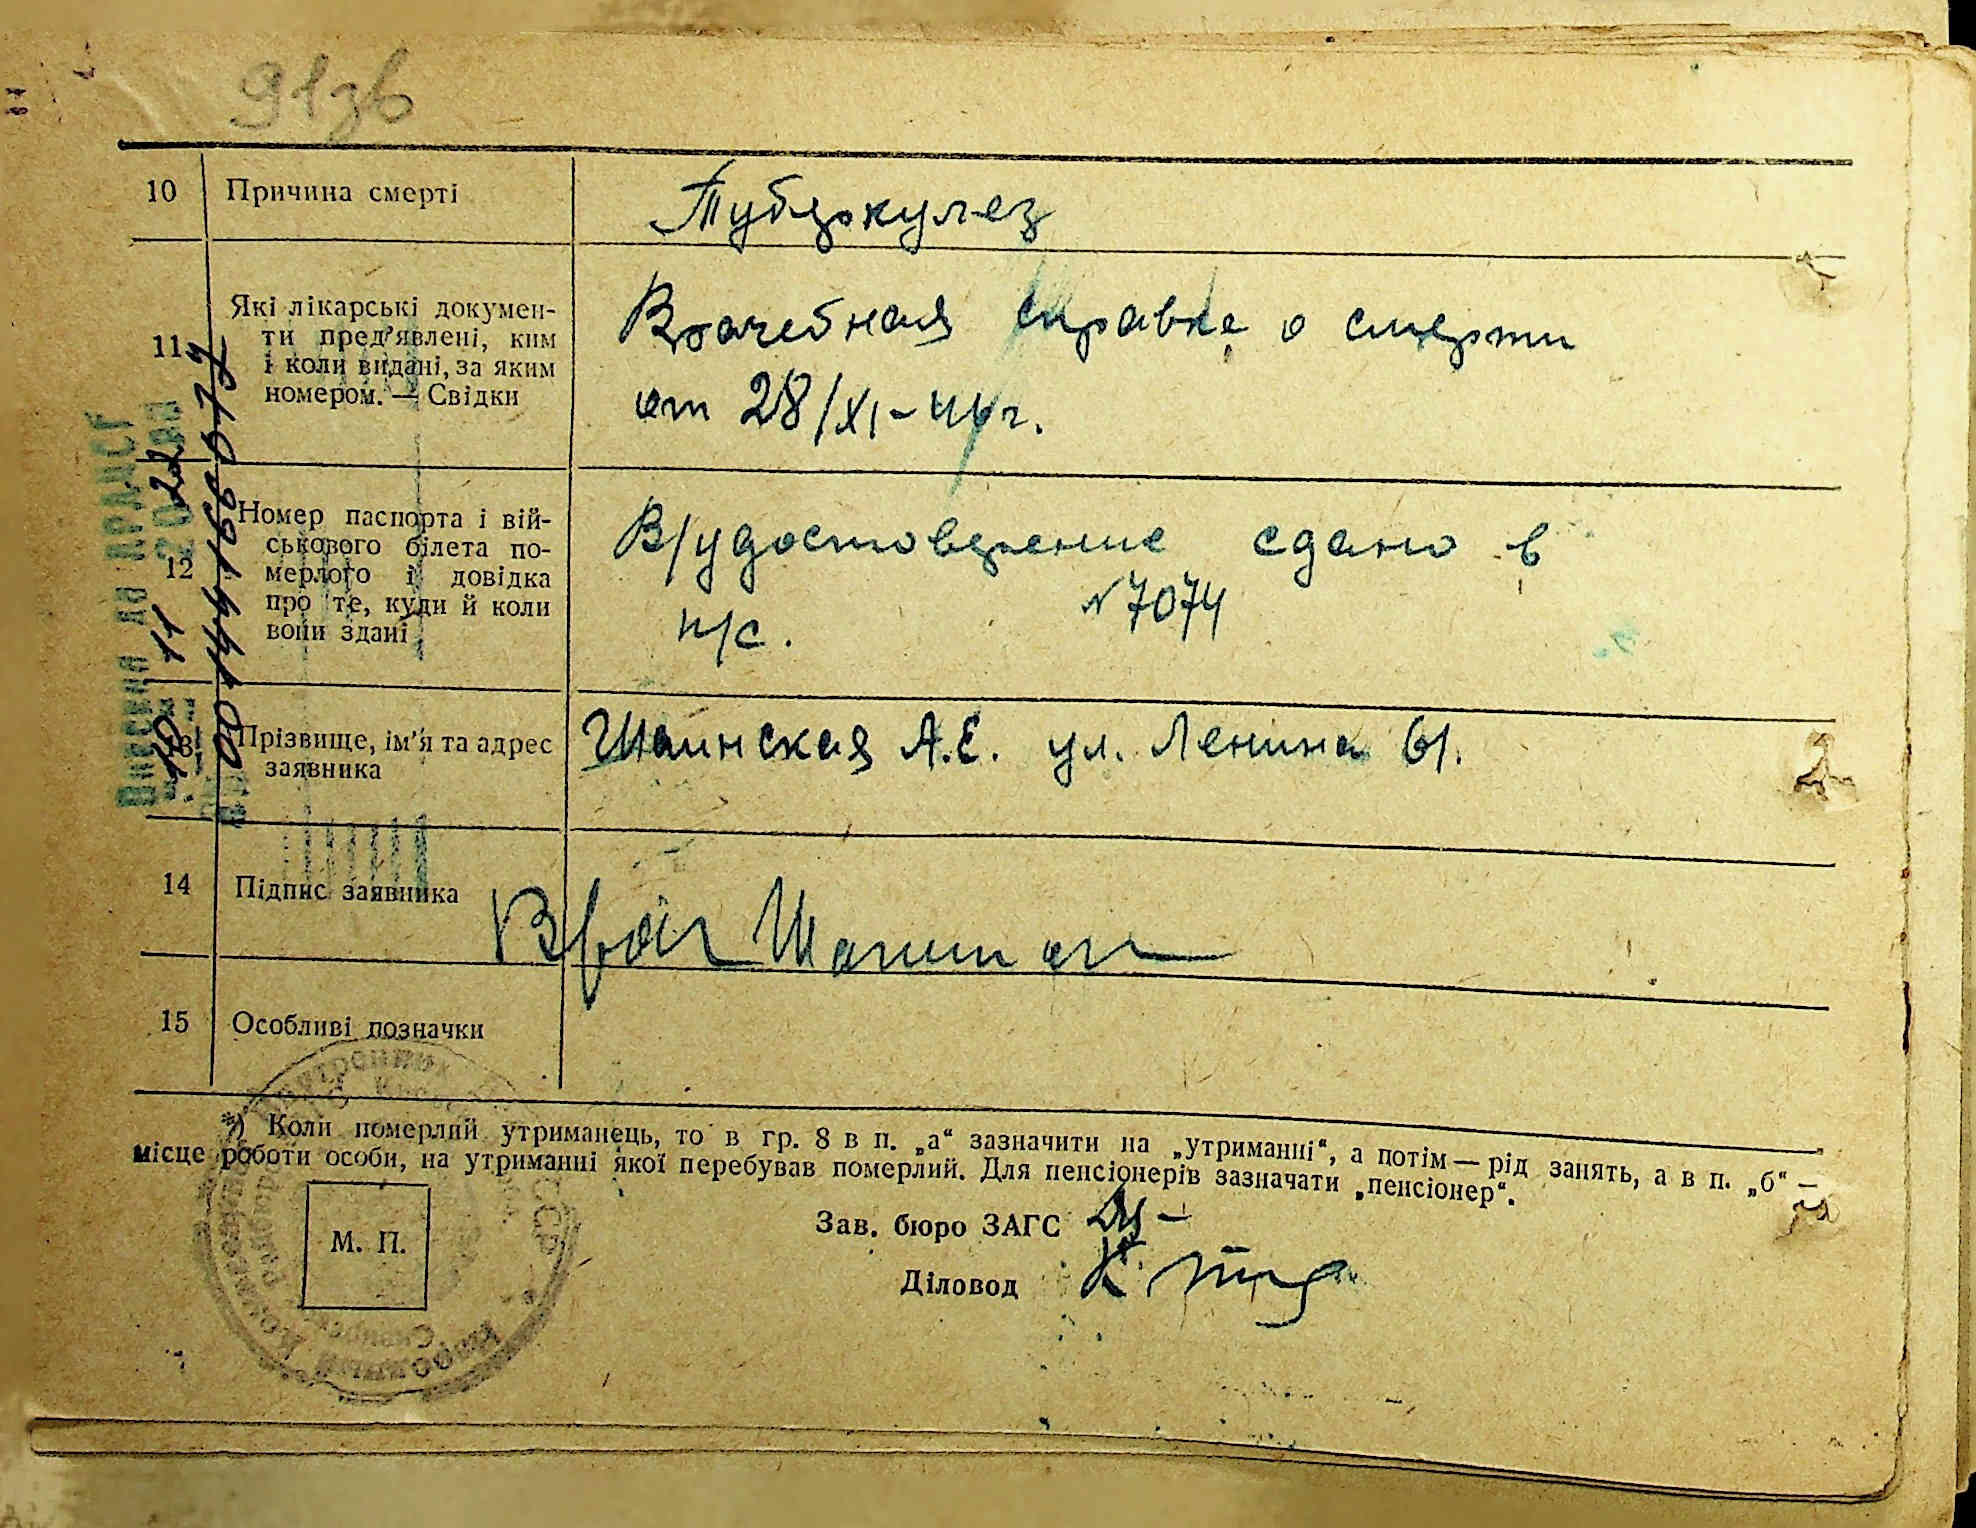 91зв
10 Причина смерті Туберкулез
11 Які лікарські документи пред'явлені, ким і коли видані, за яким номером. — Свідки
Врачебная справка о смерти
от 28/XI-44г.
12 Номер паспорта і військового білета померлого і довідка про те, куди й коли вони здані
В/удостоверение сдано в
н/с. №7074
13 Прізвище, ім'я та адрес заявника
Шаинская А.Е. ул. Ленина 61.
14 Підпис заявника
Врач
15 Особливі позначки
*) Коли померлий утриманець, то в гр. 8 в п. „а“ зазначити на „утриманні“, а потім — рід занять, а в п. „б“ —
місце роботи особи, на утриманні якої перебував померлий. Для пенсіонерів зазначати „пенсіонер“.
М. П.
Зав. бюро ЗАГС
Діловод
Внесений до ДРАЦСГ
10 11 2022